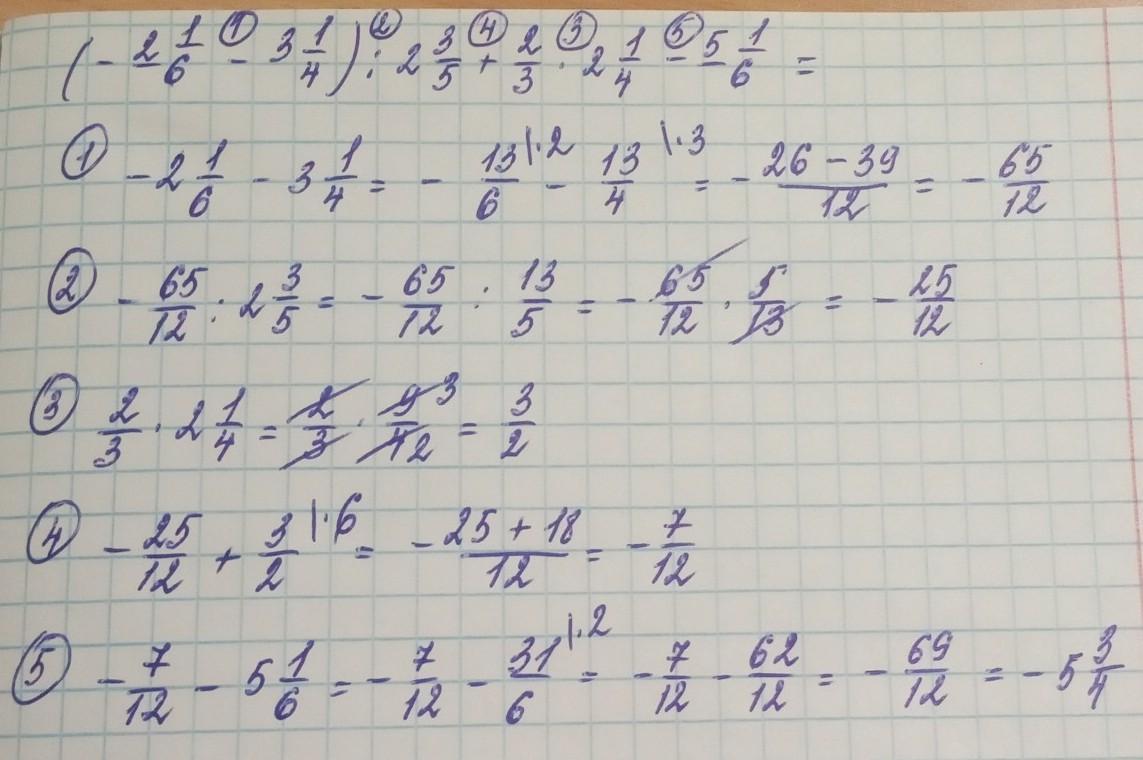 (-2 1/6 - 3 1/4) : 2 3/5 + 2/3 · 2 1/4 - 5 1/6 =
① ② ④ ③ ⑤
① -2 1/6 - 3 1/4 = - 13/6 |·2 - 13/4 |·3 = - 26 - 39/12 = - 65/12
② - 65/12 : 2 3/5 = - 65/12 : 13/5 = - 65/12 · 5/13 = - 25/12
③ 2/3 · 2 1/4 = 2/3 · 9 3/4 2 = 3/2
④ - 25/12 + 3/2 |·6 = - 25 + 18/12 = - 7/12
⑤ - 7/12 - 5 1/6 = - 7/12 - 31/6 |·2 = - 7/12 - 62/12 = - 69/12 = - 5 3/4